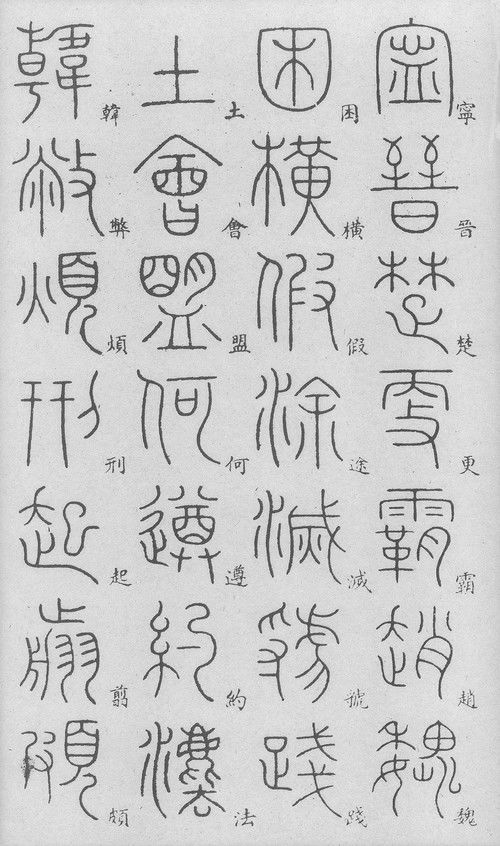 寧晋楚更霸趙魏
困橫假途滅號踐
土會盟何遵約法
韓弊煩刑起剪頗